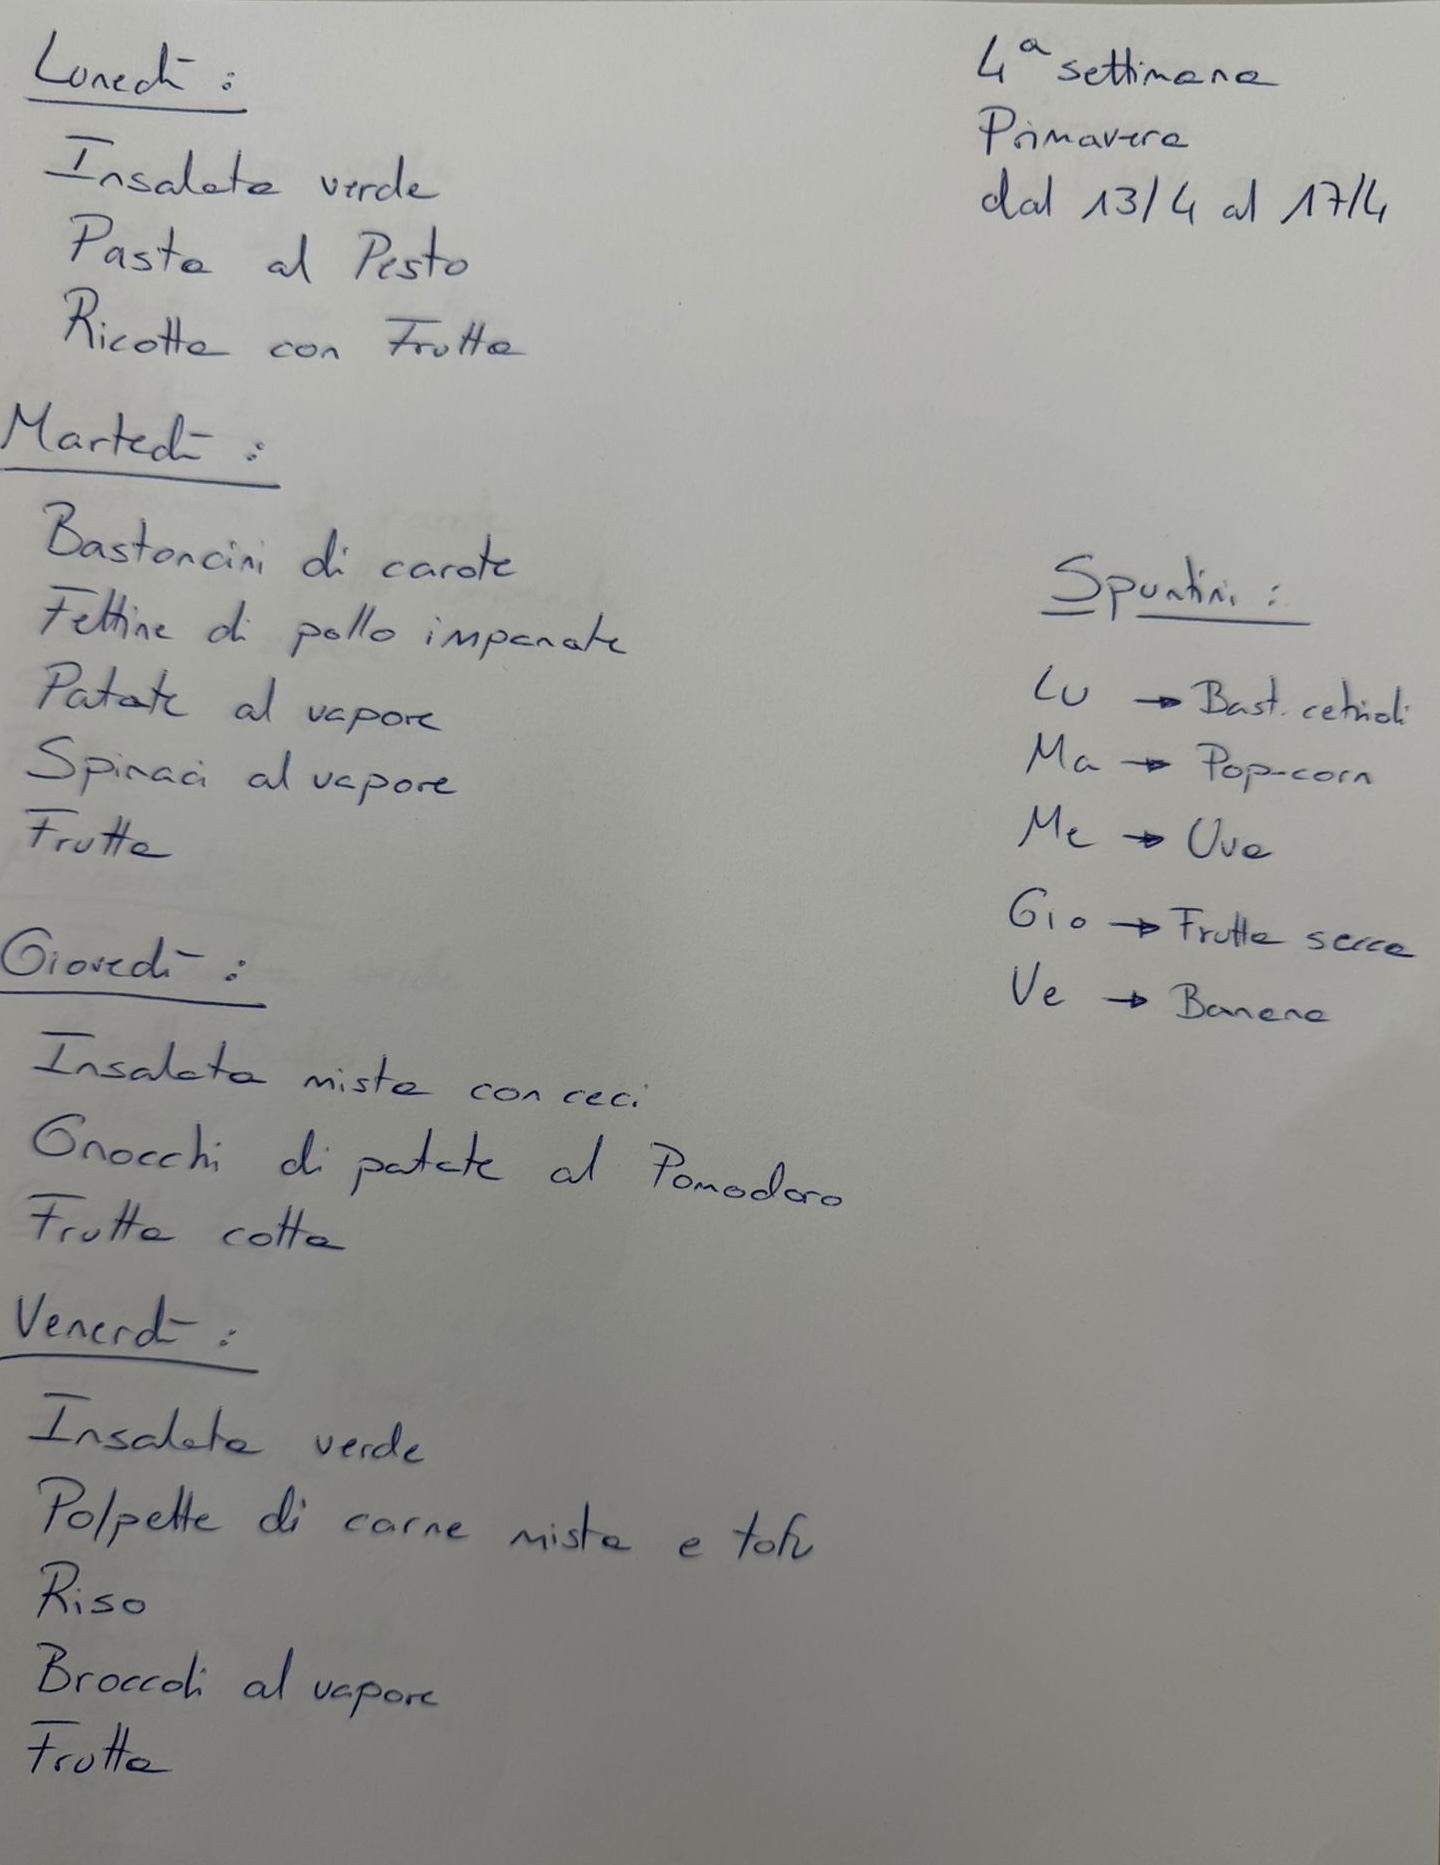 Lunedì :
Insalata verde
Pasta al Pesto
Ricotta con Frutta
Martedì :
Bastoncini di carote
Fettine di pollo impanate
Patate al vapore
Spinaci al vapore
Frutta
Giovedì :
Insalata mista con ceci
Gnocchi di patate al Pomodoro
Frutta cotta
Venerdì :
Insalata verde
Polpette di carne mista e tofu
Riso
Broccoli al vapore
Frutta
4ª settimana
Primavera
dal 13/4 al 17/4
Spuntini :
Lu → Bast. cetrioli
Ma → Pop-corn
Me → Uva
Gio → Frutta secca
Ve → Banana